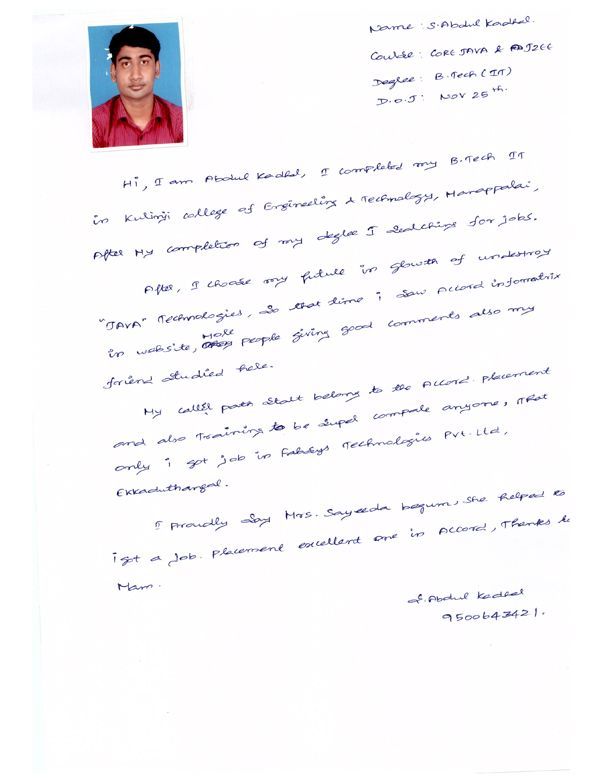 Name : S. Abdul Kadhar.
Course : CORE JAVA & J2EE
Degree : B.Tech (IT)
D.O.J : Nov 25th.
Hi, I am Abdul Kadhar, I completed my B.Tech IT
in College of Engineering & Technology, Manappalai,
After My completion of my degree I Searching for jobs.
After, I choose my future in growth of
"JAVA" Technologies, So that time i Saw Accord infomatrix
in website, More people giving good comments also my
friend Studied here.
My path Start belong to the Accord. placement
and also Training to be Super compare anyone, That
only i got job in Technologies Pvt. Ltd,
Ekkaduthangal.
I Proudly Say Mrs. Sayeeda begum, She helped to
i got a job. placement excellent one in Accord, Thanks to
Mam.
S. Abdul Kadhar
9500643421.